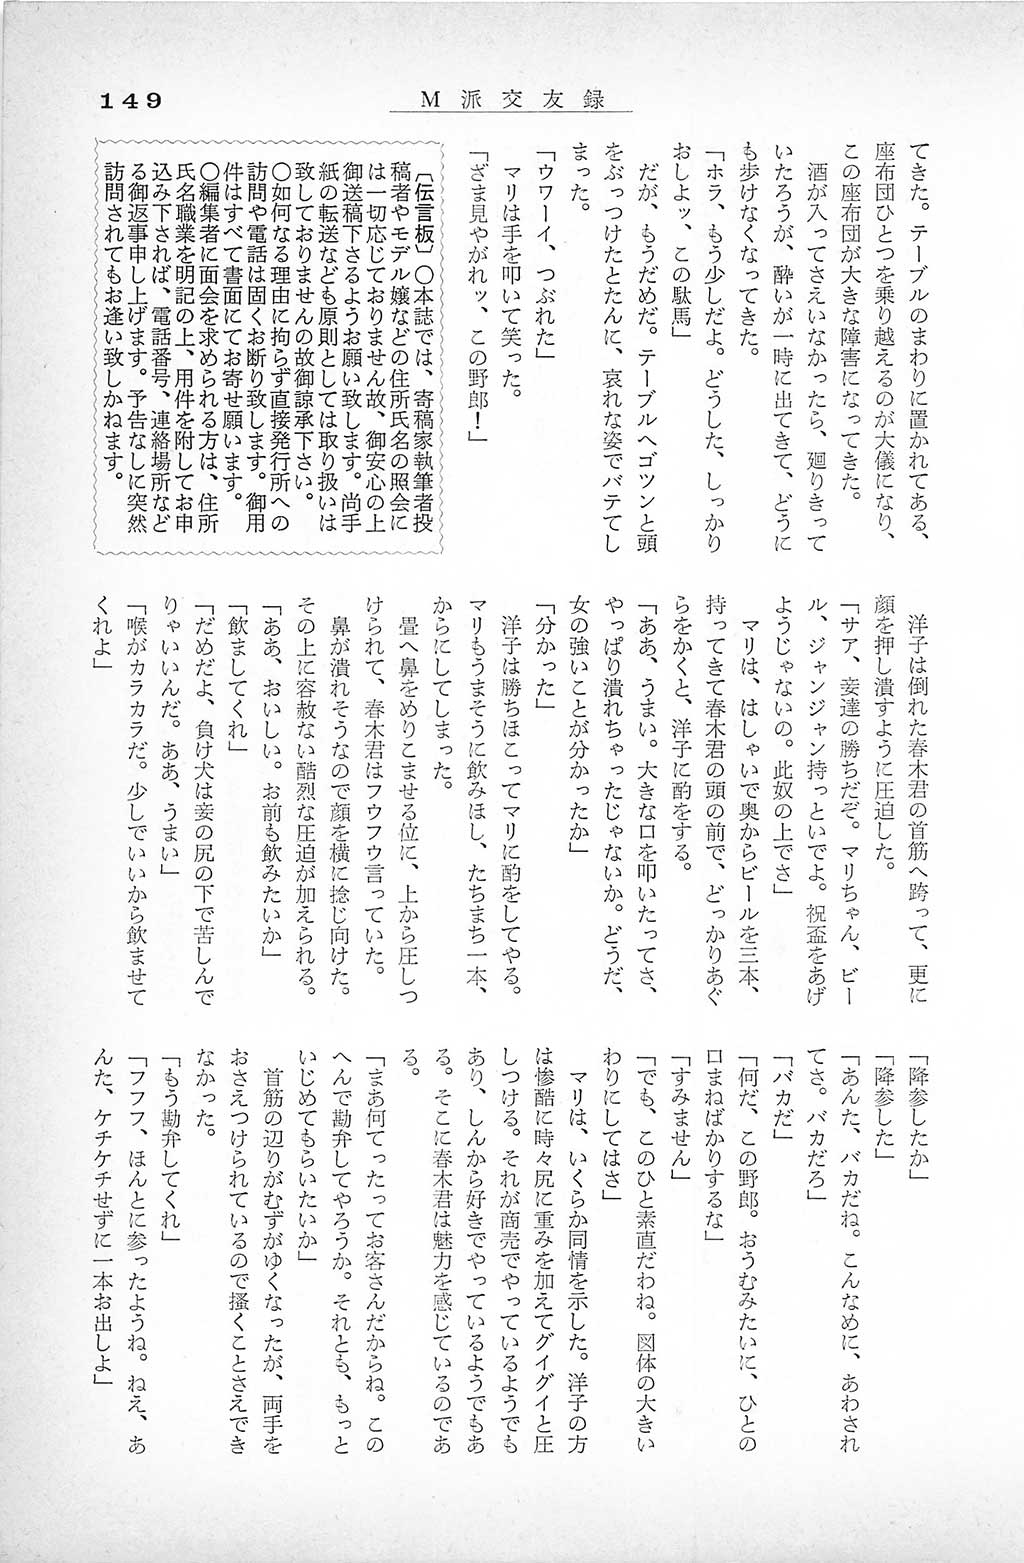 149
M派交友録
てきた。テーブルのまわりに置かれてある、
座布団ひとつを乗り越えるのが大儀になり、
この座布団が大きな障害になってきた。
酒が入ってさえいなかったら、廻りきって
いたろうが、酔いが一時に出てきて、どうに
も歩けなくなってきた。
「ホラ、もう少しだよ。どうした、しっかり
おしよッ、この駄馬」
だが、もうだめだ。テーブルへゴツンと頭
をぶっつけたとたんに、哀れな姿でバテてし
まった。
「ウワーイ、つぶれた」
マリは手を叩いて笑った。
「ざま見やがれッ、この野郎！」
〔伝言板〕〇本誌では、寄稿家執筆者投
稿者やモデル嬢などの住所氏名の照会に
は一切応じておりません故、御安心の上
御送稿下さるようお願い致します。尚手
紙の転送なども原則としては取り扱いは
致しておりませんの故御諒承下さい。
〇如何なる理由に拘らず直接発行所への
訪問や電話は固くお断り致します。御用
件はすべて書面にてお寄せ願います。
〇編集者に面会を求められる方は、住所
氏名職業を明記の上、用件を附してお申
込み下されば、電話番号、連絡場所など
る御返事申し上げます。予告なしに突然
訪問されてもお逢い致しかねます。
洋子は倒れた春木君の首筋へ跨って、更に
顔を押し潰すように圧迫した。
「サア、妾達の勝ちだぞ。マリちゃん、ビー
ル、ジャンジャン持っといでよ。祝盃をあげ
ようじゃないの。此奴の上でさ」
マリは、はしゃいで奥からビールを三本、
持ってきて春木君の頭の前で、どっかりあぐ
らをかくと、洋子に酌をする。
「ああ、うまい。大きな口を叩いたってさ、
やっぱり潰れちゃったじゃないか。どうだ、
女の強いことが分かったか」
「分かった」
洋子は勝ちほこってマリに酌をしてやる。
マリもうまそうに飲みほし、たちまち一本、
からにしてしまった。
畳へ鼻をめりこませる位に、上から圧しつ
けられて、春木君はフウフウ言っていた。
鼻が潰れそうなので顔を横に捻じ向けた。
その上に容赦ない酷烈な圧迫が加えられる。
「ああ、おいしい。お前も飲みたいか」
「飲ましてくれ」
「だめだよ、負け犬は妾の尻の下で苦しんで
りゃいいんだ。ああ、うまい」
「喉がカラカラだ。少しでいいから飲ませて
くれよ」
「降参したか」
「降参した」
「あんた、バカだね。こんなめに、あわされ
てさ。バカだろ」
「バカだ」
「何だ、この野郎。おうむみたいに、ひとの
口まねばかりするな」
「すみません」
「でも、このひと素直だわね。図体の大きい
わりにしてはさ」
マリは、いくらか同情を示した。洋子の方
は惨酷に時々尻に重みを加えてグイグイと圧
しつける。それが商売でやっているようでも
あり、しんから好きでやっているようでもあ
る。そこに春木君は魅力を感じているのであ
る。
「まあ何てったってお客さんだからね。この
へんで勘弁してやろうか。それとも、もっと
いじめてもらいたいか」
首筋の辺りがむずがゆくなったが、両手を
おさえつけられているので搔くことさえでき
なかった。
「もう勘弁してくれ」
「フフフ、ほんとに参ったようね。ねえ、あ
んた、ケチケチせずに一本お出しよ」